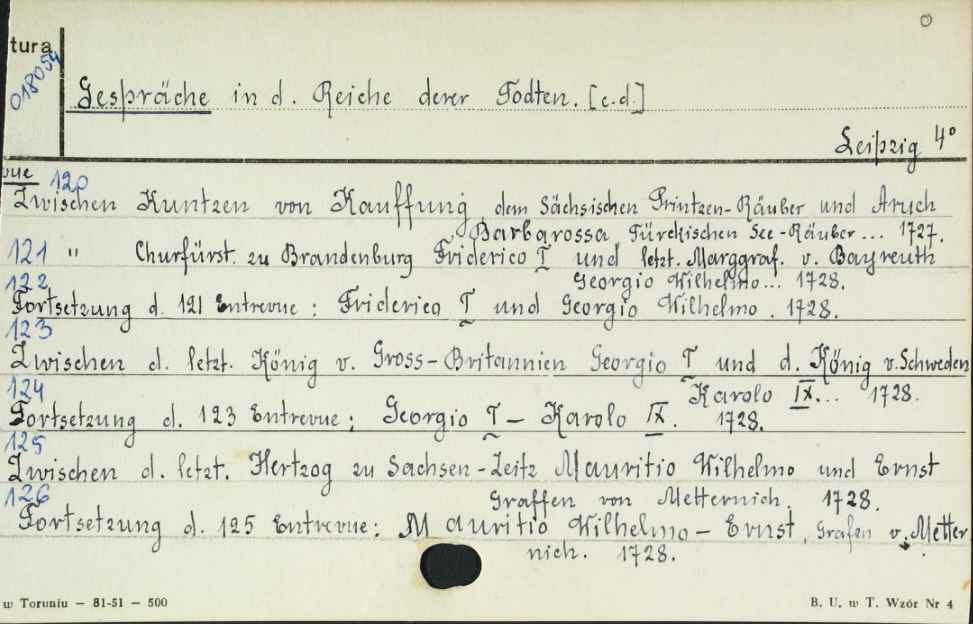 0
tura
018054
Gespräche in d. Reiche derer Todten. [c.d.]
Leipzig 4°
vue 120
Zwischen Kuntzen von Kauffung, dem Sächsischen Printzen-Räuber und Aruch
Barbarossa, Türckischen See-Räuber... 1727.
121 " Churfürst. zu Brandenburg Friderico I und letzt. Marggraf. v. Bayreuth
Georgio Wilhelmo... 1728.
122
Fortsetzung d. 121 Entrevue: Friderico I und Georgio Wilhelmo. 1728.
123
Zwischen d. letzt. König v. Gross-Britannien Georgio I und d. König v. Schweden
Karolo IX... 1728.
124
Fortsetzung d. 123 Entrevue: Georgio I – Karolo IX. 1728.
125
Zwischen d. letzt. Hertzog zu Sachsen-Zeitz Mauritio Wilhelmo und Ernst
Graffen von Metternich. 1728.
126
Fortsetzung d. 125 Entrevue: Mauritio Wilhelmo – Ernst, Grafen v. Metter
nich. 1728.
w Toruniu — 81-51 — 500
B. U. w T. Wzór Nr 4